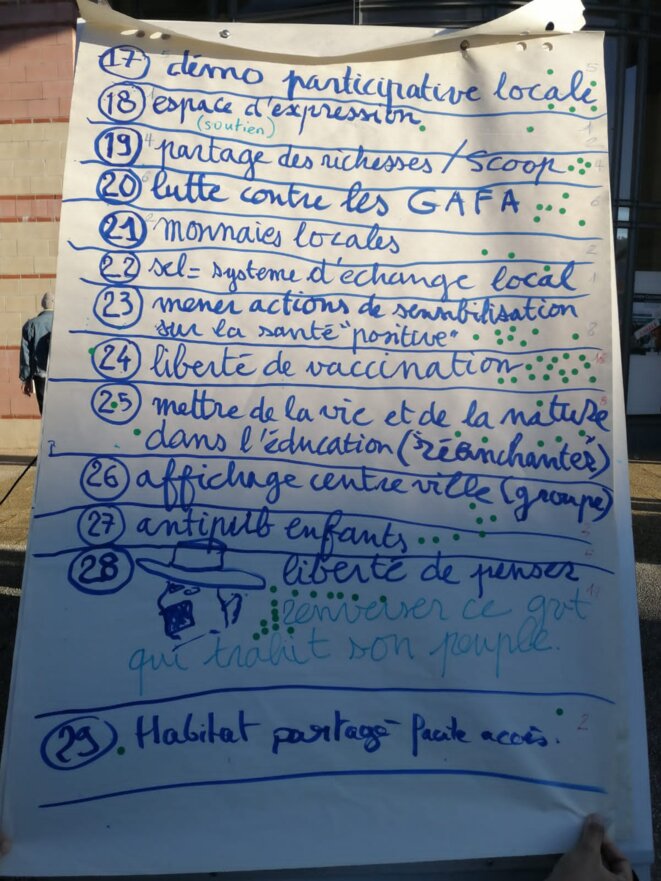 17 démo participative locale 5
18 espace d'expression 1
(soutien)
19 partage des richesses / Scoop 4
20 lutte contre les GAFA 6
21 monnaies locales 2
22 sel = système d'échange local 1
23 mener actions de sensibilisation
sur la santé "positive" 8
24 liberté de vaccination
25 mettre de la vie et de la nature
dans l'éducation (réenchanter)
26 affichage centre ville (groupe)
27 antipub enfants
28 liberté de penser
renverser ce gvt
qui trahit son peuple.
29 Habitat partagé facile accès. 2